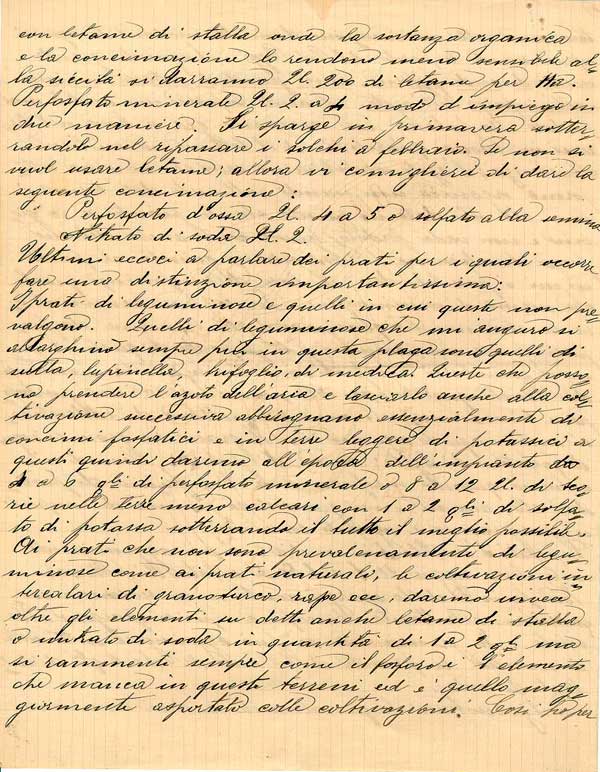 con letame di stalla onde la sostanza organica
e la concimazione lo rendono meno sensibile al-
la siccità si daranno Ql. 200 di letame per Ha.
Perfosfato minerale Ql. 2. a 4 modo d'impiego in
due maniere. Si sparge in primavera sotter-
randolo nel ripassare i solchi a febbraio. Se non si
vuol usare letame; allora vi consiglierei di dare la
seguente concimazione:
Perfosfato d'ossa Ql. 4 a 5 o solfato alla semina
Nitrato di soda Ql. 2.
Ultimi eccoci a parlare dei prati per i quali occorre
fare una distinzione importantissima:
I prati di leguminose e quelli in cui queste non pre-
valgono. Quelli di leguminose che mi auguro si
allarghino sempre più in questa plaga sono quelli di
sulla, lupinella, trifoglio, di medica. Queste che posso-
no, prendere l'azoto dell'aria e lasciarlo anche alla col-
tivazione successiva abbisognano essenzialmente di
concimi fosfatici e in terre leggere di potassici a
questi quindi daremo all'epoca dell'impianto da
4 a 6 qli di perfosfato minerale o 8 a 12 Ql. di sco-
rie nelle terre meno calcari con 1 a 2 qli di solfa-
to di potassa sotterrando il tutto il meglio possibile.
Ai prati che non sono prevalenamenti di legu-
minose come ai prati naturali, le coltivazioni in-
tercalari di granoturco, rape ecc, daremo invece
oltre gli elementi su detti anche letame di stalla
o nitrato di soda in quantità di 1 a 2 qli ma
si rammenti sempre come il fosforo è l'elemento
che manca in questi terreni ed è quello mag-
giormente asportato colle coltivazioni. Così ho per